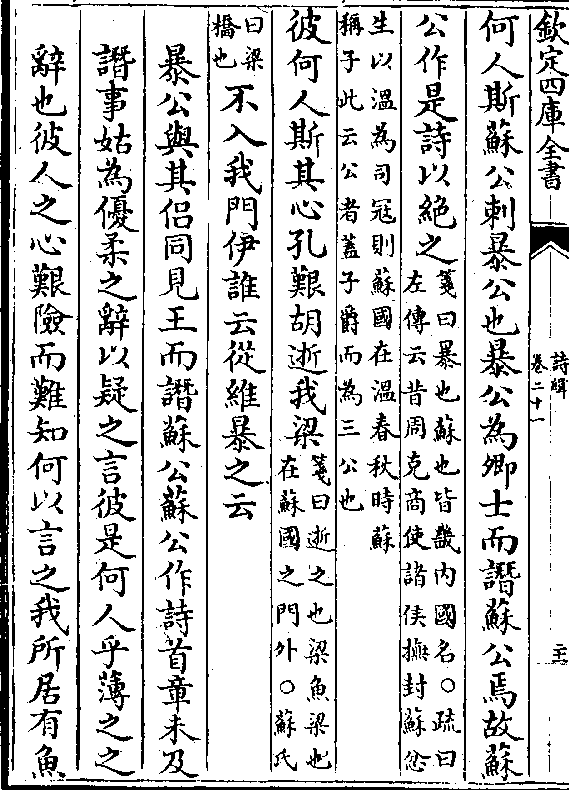 欽定四庫全書
詩緝
卷二十一
何人斯蘇公刺暴公也暴公為卿士而譖蘇公焉故蘇
公作是詩以絶之
箋曰暴也蘇也皆畿内國名○疏曰
左傳云昔周克商使諸侯撫封蘇忿
生以溫為司冦則蘇國在溫春秋時蘇
稱子此云公者蓋子爵而為三公也
彼何人斯其心孔艱胡逝我梁
箋曰逝之也梁魚梁也
在蘇國之門外○蘇氏
曰梁
橋也
不入我門伊誰云從維暴之云
暴公與其侣同見王而譖蘇公蘇公作詩首章未及
譖事姑為優柔之辭以疑之言彼是何人乎薄之之
辭也彼人之心艱險而難知何以言之我所居有魚